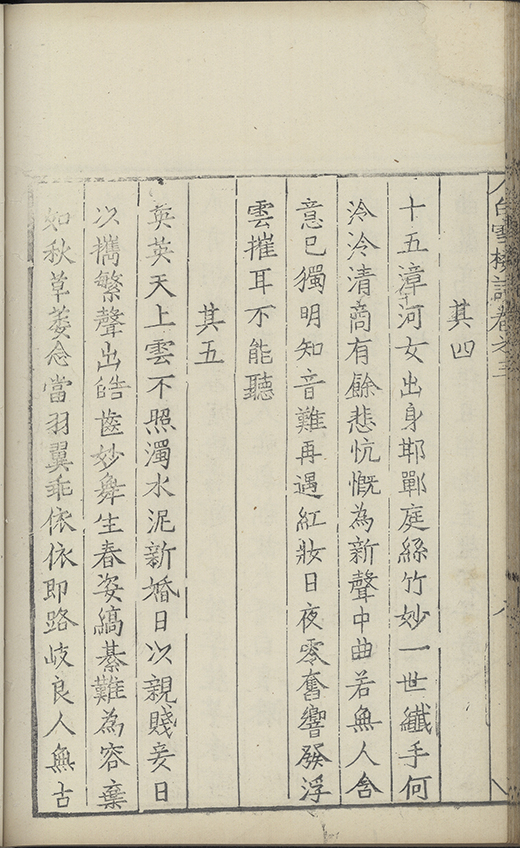 白雪樓詩卷之三
其四
十五漳河女出身邯鄲庭絲竹妙一世纖手何
泠泠清商有餘悲忼慨為新聲中曲若無人含
意已獨明知音難再遇紅妝日夜零奮響發浮
雲摧耳不能聽
其五
英英天上雲不照濁水泥新婚日以親賤妾日
以攜繁聲出皓齒妙舞生春姿縞綦難為容棄
如秋草萎念當羽翼乖依依即路岐良人無古
八